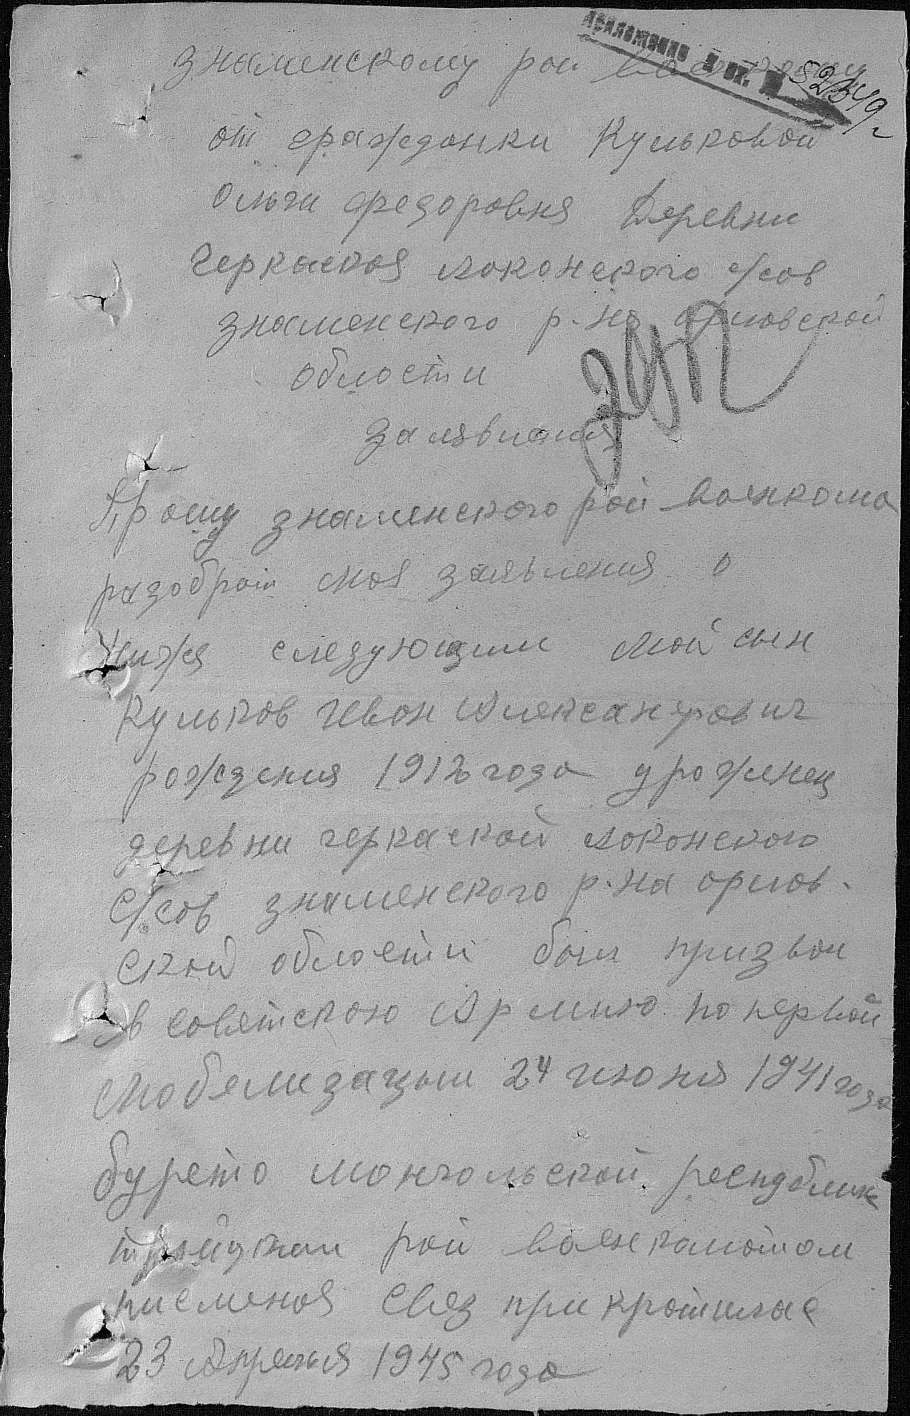 приложение к вх. № 52349г
знаменскому рай
от гражданки Кульковой
Ольги федоровня Деревни
Черкаская локонского с/сов
знаменского р-на орловской
области
заявления
Прошу знаменского рай ваенкома
разобрат моя заявления о
ниже следующим мой сын
Кульков Иван Александрович
рождения 1912 года урожинец
деревни черкаской локонского
с/сов знаменского р-на орлов-
ской области был призван
в советскою Армию по первой
мобелизацыи 24 июня 1941 года
бурето монгольской республик
рай ваенкаматом
писменоя Свез прикротилас
23 Апреля 1945 года